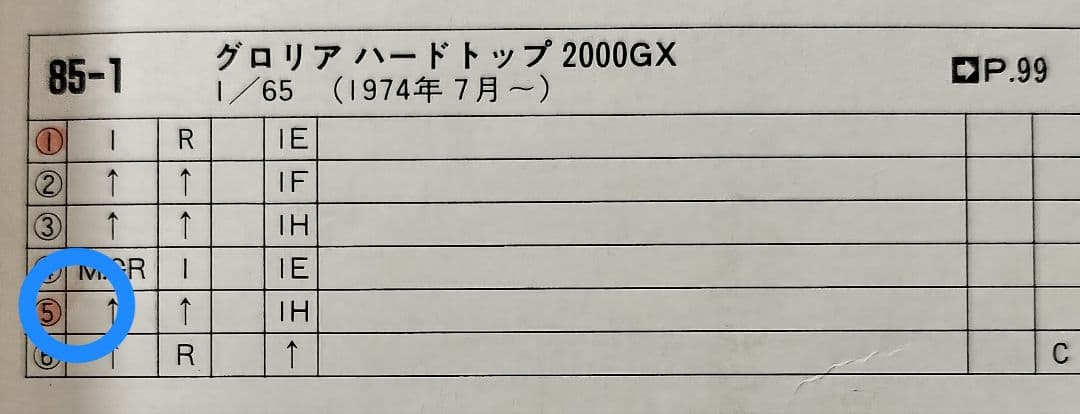 85-1
グロリア ハードトップ 2000GX
1／65 （1974年 7月～）
➡P.99
① I R IE
② ↑ ↑ IF
③ ↑ ↑ IH
I IE
⑤ ↑ ↑ IH
⑥ ↑ R ↑ C